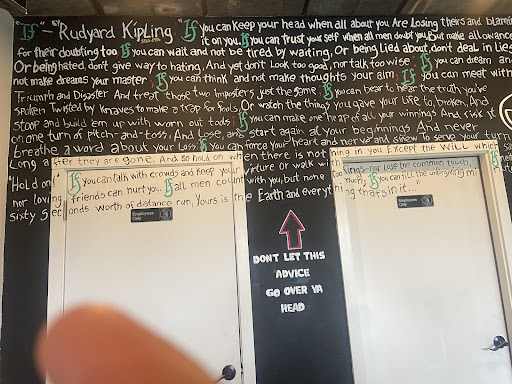 "If" - Rudyard Kipling "If you can keep your head when all about you Are Losing theirs and blaming
it on you. If you can trust your self when all men doubt you, But make allowance
for their doubting too If you can wait and not be tired by waiting, Or being lied about, dont deal in Lies
Or being hated, don't give way to hating, And yet don't Look too good, nor talk too wise; If you can dream and
not make dreams your master; If you can think and not make thoughts your aim, If you can meet with
Triumph and Disaster And treat those two impostors just the same; If you can bear to hear the truth you've
spoken Twisted by knaves to make a trap for fools, Or watch the things you gave your life to, broken, And
stoop and build em up with worn out tools; If you can make one heap of all your winnings And risk it
on one turn of pitch-and-toss, And Lose, and start again at your beginnings And never
breathe a word about your Loss; If you can force your heart and nerve and sinew To serve your turn
Long after they are gone, And so hold on when there is nothing in you Except the Will which
"Hold on! If you can talk with crowds and keep your virture or walk with kings nor lose the common touch,
nor loving friends can hurt you, If all men count with you, but none too much, If you can fill the unforgiving
sixty seconds worth of distance run, Yours is the Earth and everything thats in it...
Employees Only
Employees Only
DON'T LET THIS
ADVICE
GO OVER YA
HEAD